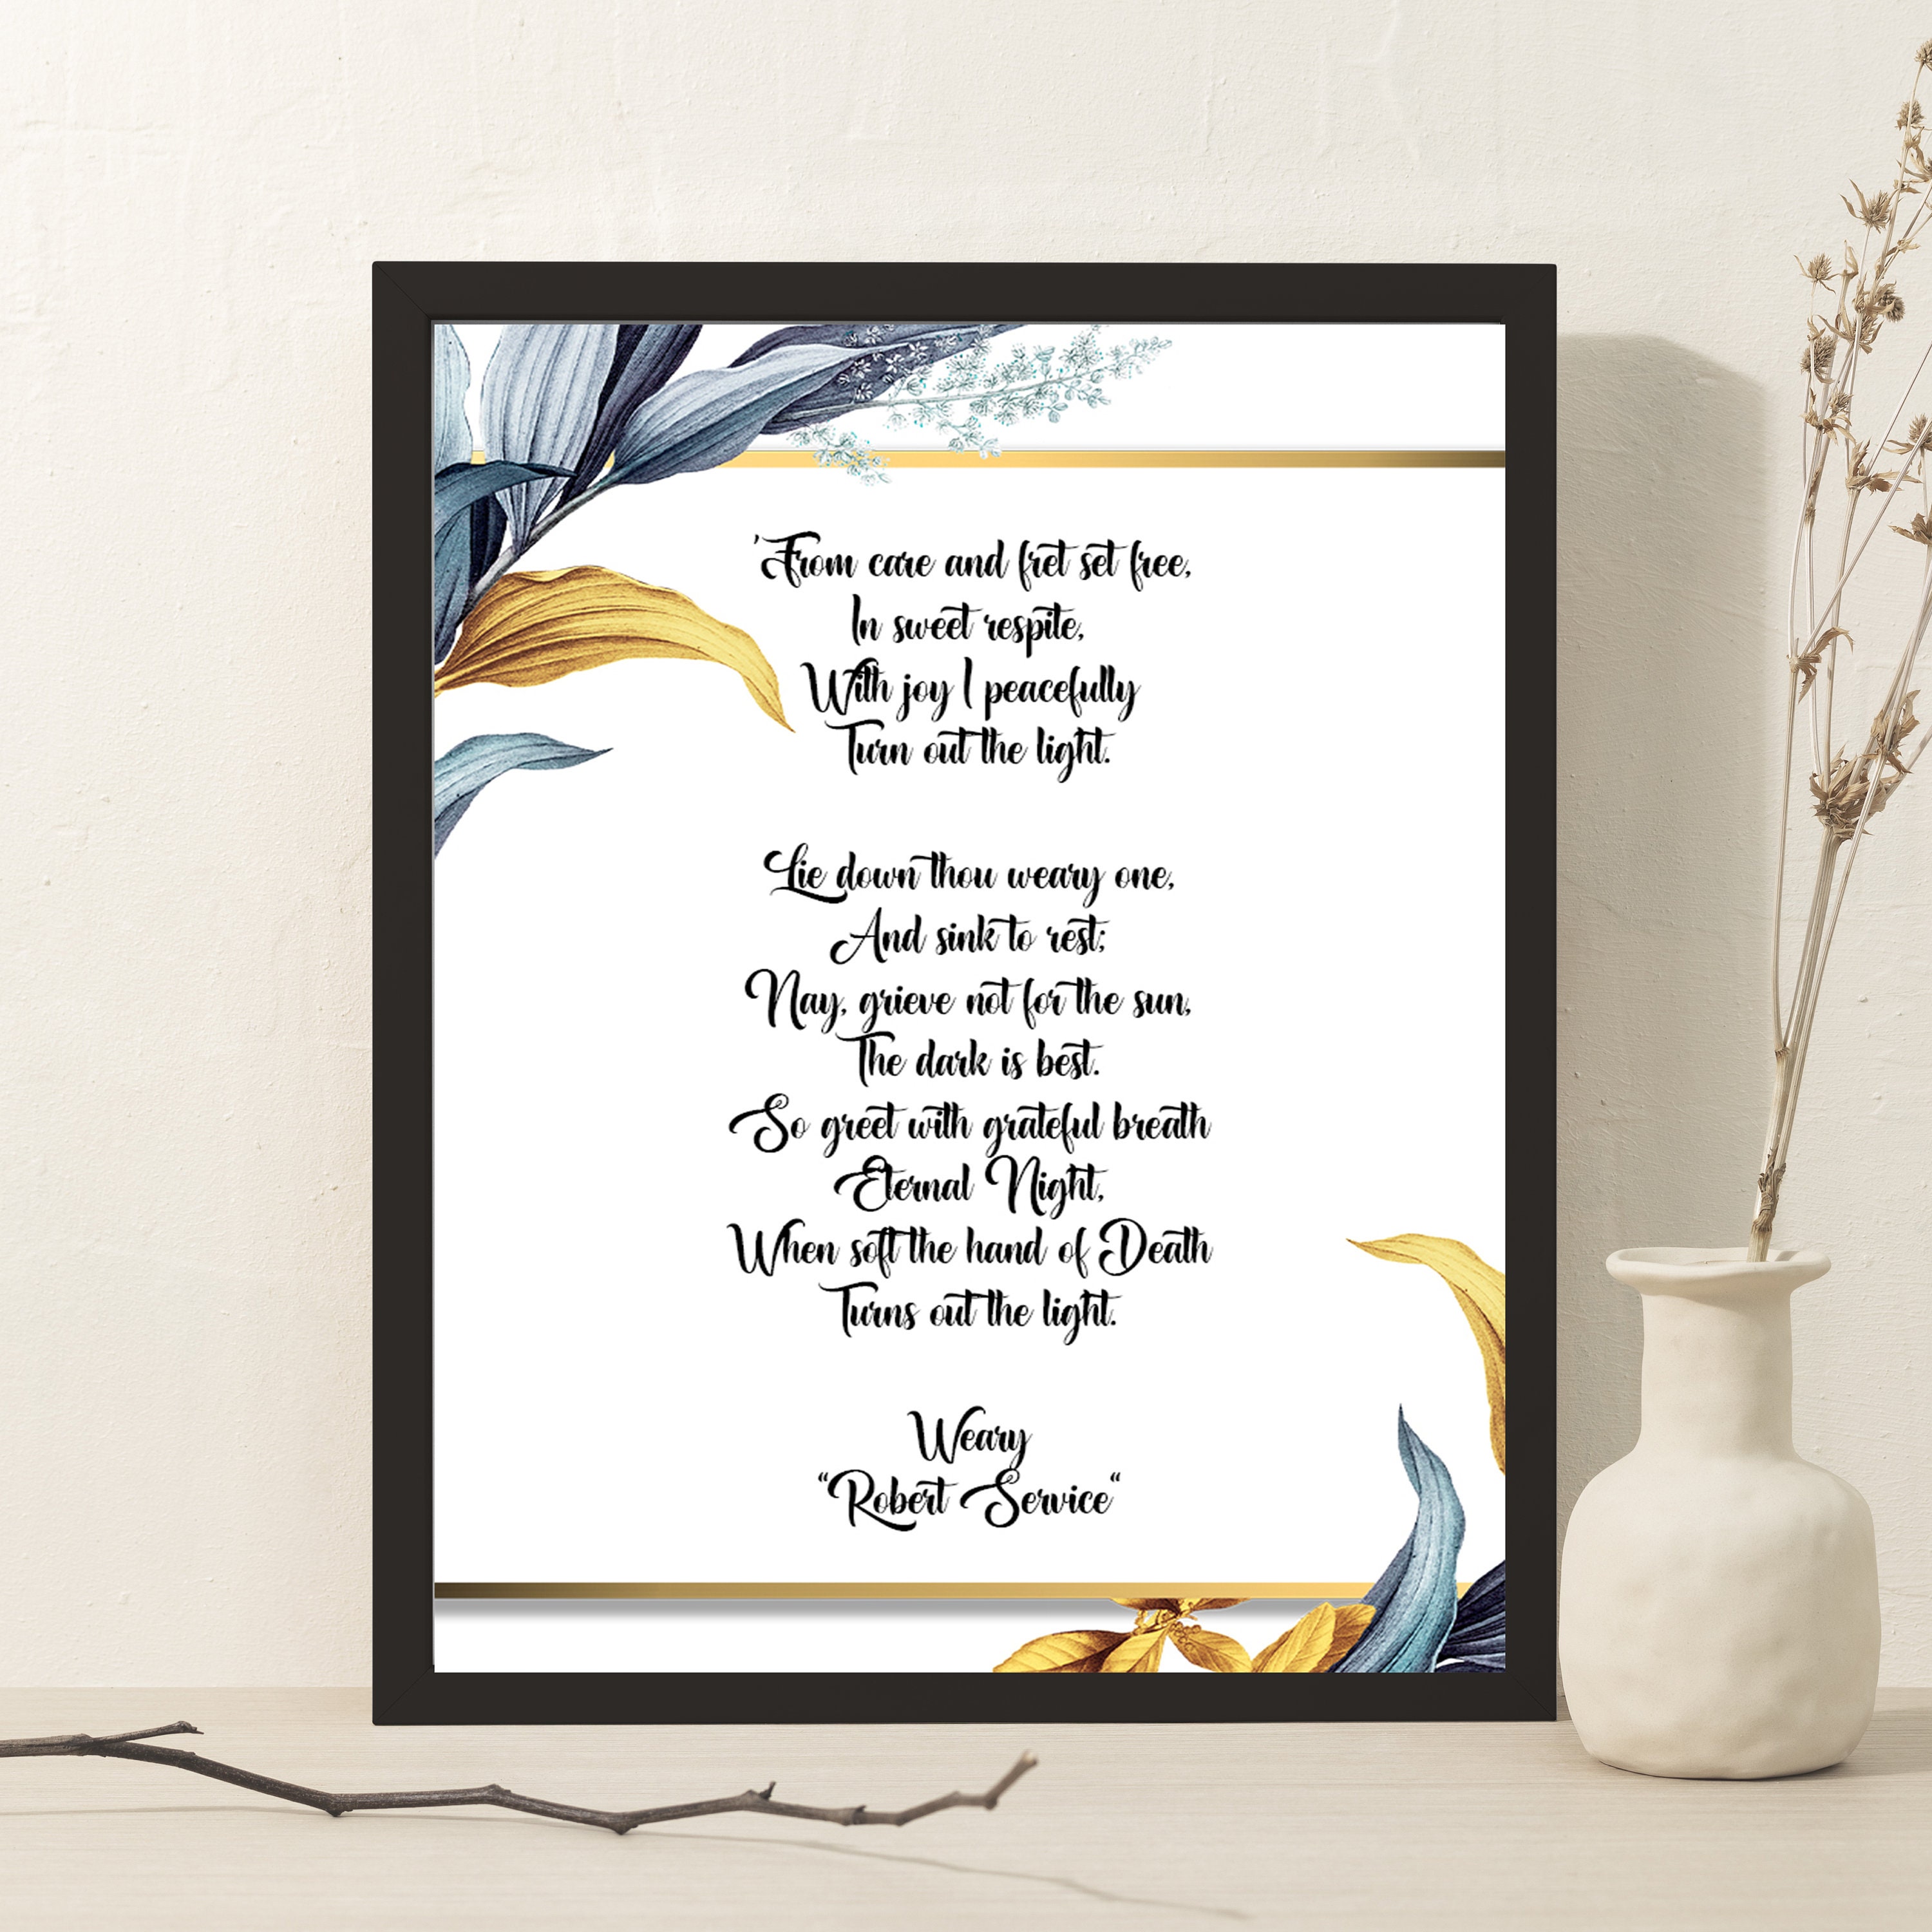 'From care and fret set free,
In sweet respite,
With joy I peacefully
Turn out the light.
Lie down thou weary one,
And sink to rest;
Nay, grieve not for the sun,
The dark is best.
So greet with grateful breath
Eternal Night,
When soft the hand of Death
Turns out the light.
Weary
“Robert Service“